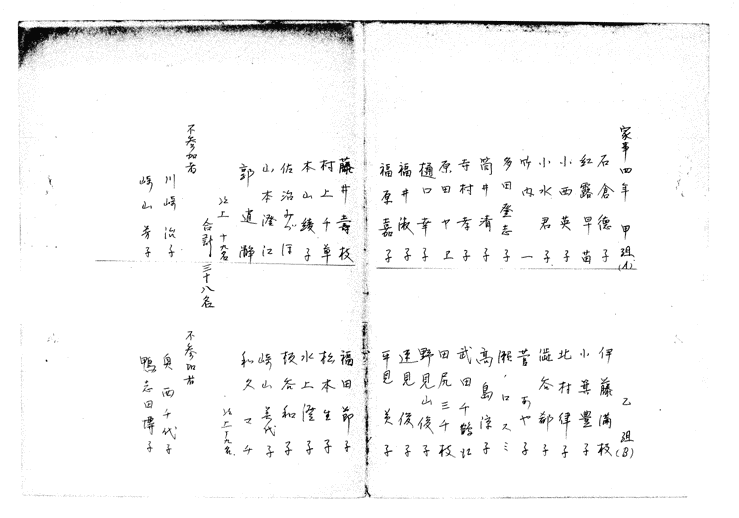 家事四年 甲組(A)
石倉德子
紅露早苗
小西英子
小水君子
竹内一
多田登志子
筒井清子
寺村孝子
原田ヤヱ
樋口幸子
福井淑子
福原嘉子
藤井壽枝
村上千草
木山綾子
佐治
山本澄江
郭道
以上 十九名
合計 三十八名
不参加者
川崎治子
崎山芳子
乙組(B)
伊藤滿枝
小箕豐子
北村律子
澁谷都子
菅あや子
瀬ノ口スミ
高島涼子
武田千鶴江
田尻三千枝
野見山俊子
速見俊子
平見美子
福田節子
松本生子
水上澄子
板谷和子
崎山美代子
和久マチ
以上十九名
不参加者
奥西千代子
鴨志田博子